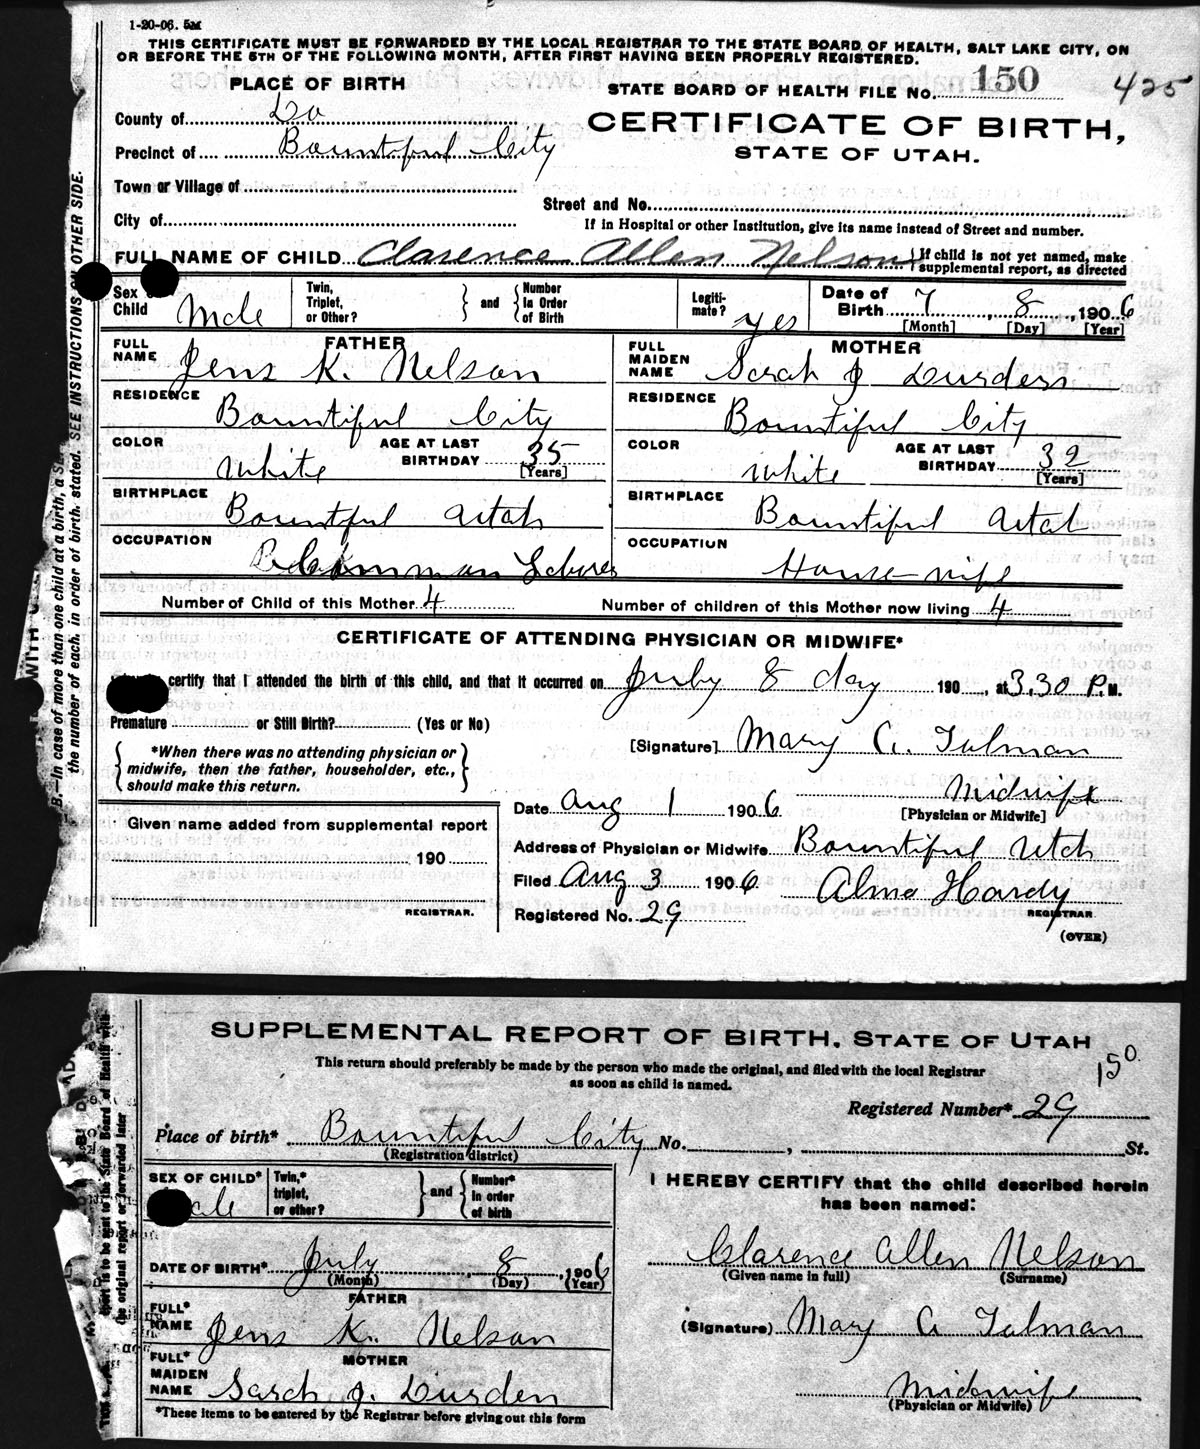 1-20-06. 5M
THIS CERTIFICATE MUST BE FORWARDED BY THE LOCAL REGISTRAR TO THE STATE BOARD OF HEALTH, SALT LAKE CITY, ON
OR BEFORE THE 5TH OF THE FOLLOWING MONTH, AFTER FIRST HAVING BEEN PROPERLY REGISTERED.
PLACE OF BIRTH
STATE BOARD OF HEALTH FILE No. 150 425
County of
CERTIFICATE OF BIRTH,
Precinct of Bountiful City
STATE OF UTAH.
Town or Village of
Street and No.
City of
If in Hospital or other Institution, give its name instead of Street and number.
FULL NAME OF CHILD Clarence Allen Nelson { If child is not yet named, make supplemental report, as directed
Sex of Child Male Twin, Triplet, or Other? } and { Number In Order of Birth Legiti-mate? yes Date of Birth 7 8, 1906
[Month] [Day] [Year]
FATHER
FULL NAME Jens K. Nelson
MOTHER
FULL MAIDEN NAME Sarah J Durden
RESIDENCE Bountiful City
RESIDENCE Bountiful City
COLOR White AGE AT LAST BIRTHDAY 35 [Years]
COLOR White AGE AT LAST BIRTHDAY 32 [Years]
BIRTHPLACE Bountful Utah
BIRTHPLACE Bountiful Utah
OCCUPATION Common Laborer
OCCUPATION House-wife
Number of Child of this Mother 4 Number of children of this Mother now living 4
CERTIFICATE OF ATTENDING PHYSICIAN OR MIDWIFE*
certify that I attended the birth of this child, and that it occurred on July 8 day 190 , at 3.30 P.M.
Premature or Still Birth? (Yes or No)
[Signature] Mary A. Tolman
*When there was no attending physician or
midwife, then the father, householder, etc.,
should make this return.
Midwife
[Physician or Midwife]
Date Aug 1 1906
Given name added from supplemental report
190
REGISTRAR.
Address of Physician or Midwife Bountiful Utah
Filed Aug 3 1906 Alma Hardy
REGISTRAR
Registered No. 29
(OVER)
B.—In case of more than one child at a birth, a
the number of each, in order of birth, stated. SEE INSTRUCTIONS ON OTHER SIDE.
SUPPLEMENTAL REPORT OF BIRTH, STATE OF UTAH
This return should preferably be made by the person who made the original, and filed with the local Registrar
as soon as child is named.
150
Registered Number* 29
Place of birth* Bountiful City No. , St.
(Registration district)
SEX OF CHILD* Male Twin,* triplet, or other? } and { Number* in order of birth
I HEREBY CERTIFY that the child described herein
has been named:
DATE OF BIRTH* July 8, 1906
(Month) (Day) (Year)
Clarence Allen Nelson
(Given name in full) (Surname)
FATHER
FULL* NAME Jens K. Nelson
(Signature) Mary A Tolman
MOTHER
FULL* MAIDEN NAME Sarah J. Durden
Midwife
(Physician or Midwife)
*These items to be entered by the Registrar before giving out this form